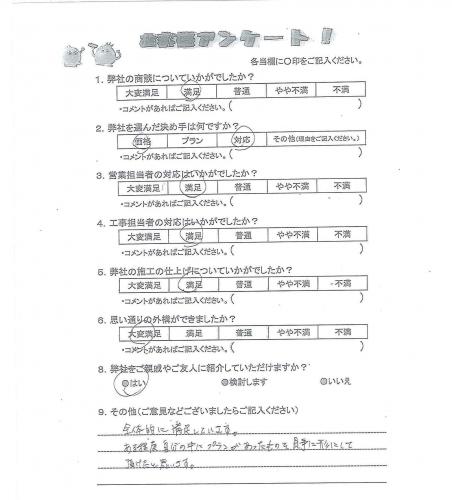 お客様アンケート!
各当欄に〇印をご記入ください。
1. 弊社の商談についていかがでしたか?
大変満足 満足 普通 やや不満 不満
・コメントがあればご記入ください。( )
2. 弊社を選んだ決め手は何ですか?
価格 プラン 対応 その他(理由をご記入ください。)
・コメントがあればご記入ください。( )
3. 営業担当者の対応はいかがでしたか?
大変満足 満足 普通 やや不満 不満
・コメントがあればご記入ください。( )
4. 工事担当者の対応はいかがでしたか?
大変満足 満足 普通 やや不満 不満
・コメントがあればご記入ください。( )
5. 弊社の施工の仕上げについていかがでしたか?
大変満足 満足 普通 やや不満 不満
・コメントがあればご記入ください。( )
6. 思い通りの外構ができましたか?
大変満足 満足 普通 やや不満 不満
・コメントがあればご記入ください。( )
8. 弊社をご親戚やご友人に紹介していただけますか?
◎はい ◎検討します ◎いいえ
9. その他(ご意見などございましたらご記入ください)
全体的に満足しています。
ある程度自分の中にプランがあったものを見事に形にして
頂けたと思います。